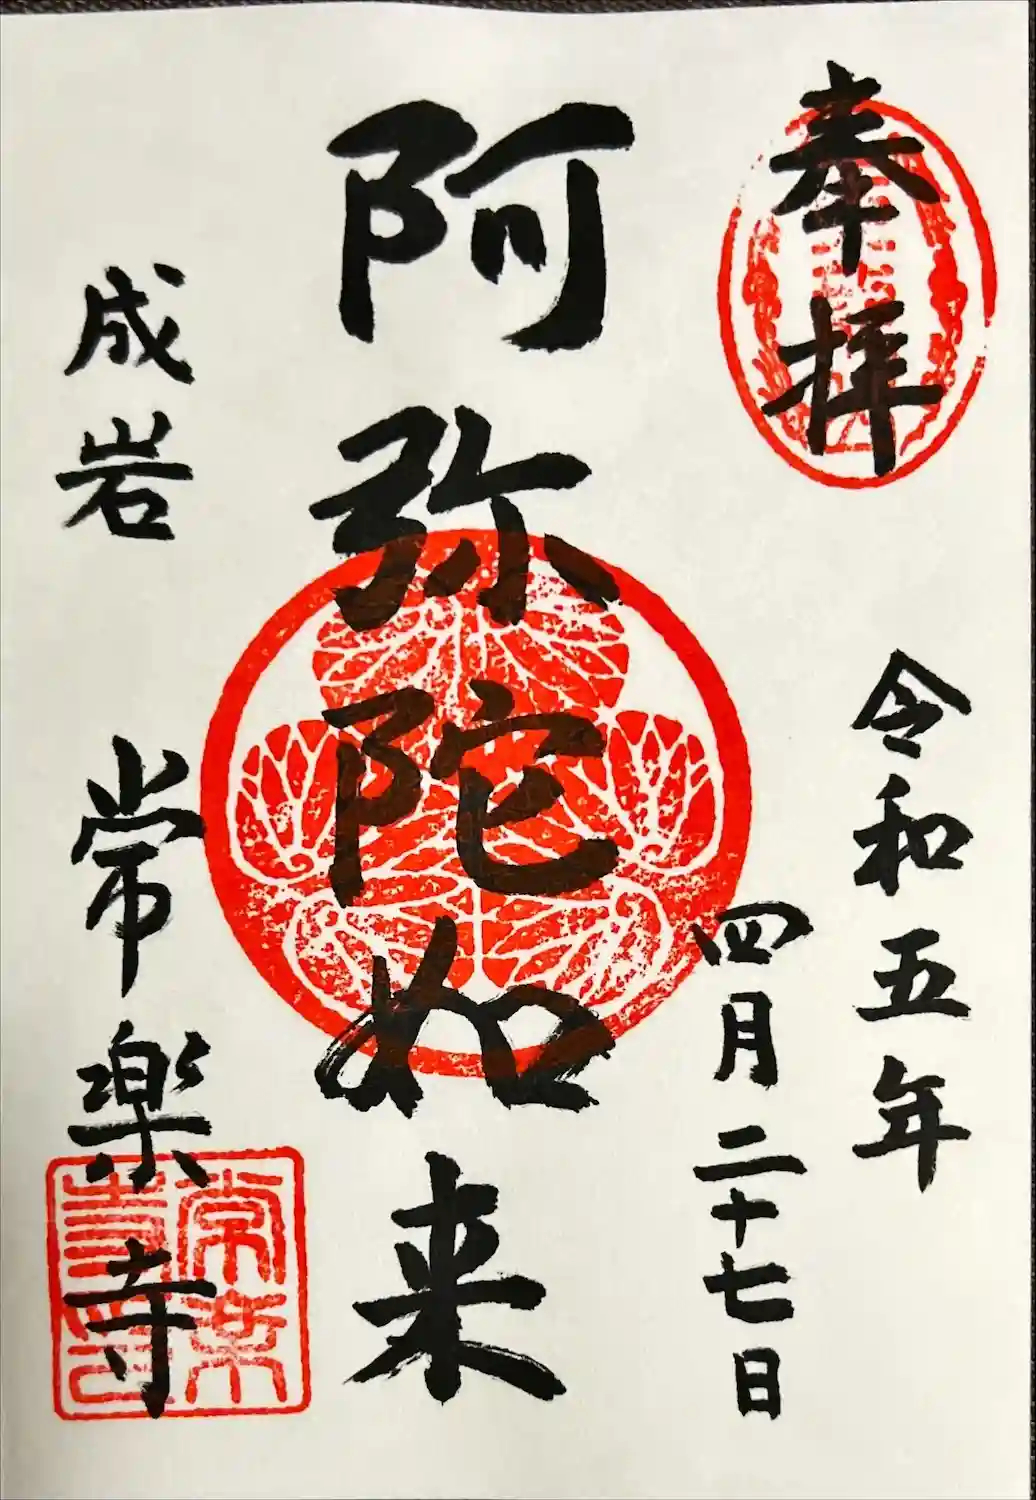 奉拝
令和五年
四月二十七日
阿弥陀如来
成岩 常楽寺
常楽
寺印